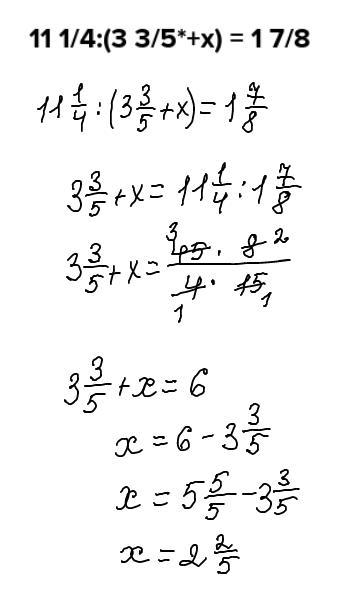 11 1/4:(3 3/5*+x) = 1 7/8
11 1/4 : (3 3/5 + x) = 1 7/8
3 3/5 + x = 11 1/4 : 1 7/8
3 3/5 + x = 3 45 · 8 2 / 1 4 · 15 1
3 3/5 + x = 6
x = 6 - 3 3/5
x = 5 5/5 - 3 3/5
x = 2 2/5